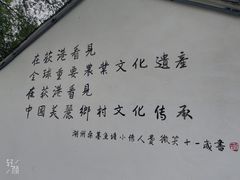 在荻港看見
全球重要農業文化遺產
在荻港看見
中國美麗鄉村文化传承
湖州
小傳人費微笑十一歲書